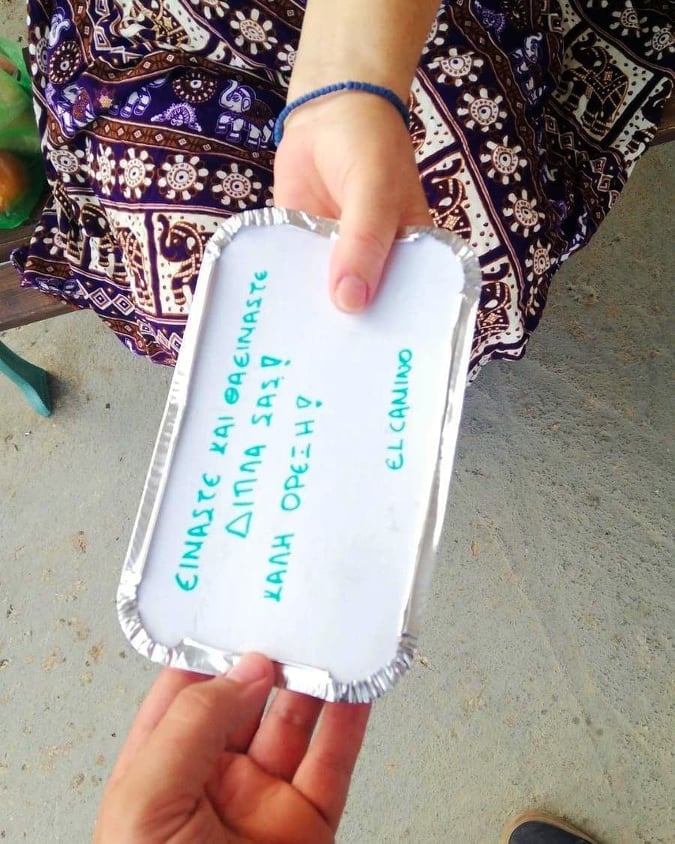 ΕΙΝΑΣΤΕ ΚΑΙ ΘΑΕΙΝΑΣΤΕ
ΔΙΠΛΑ ΣΑΣ!
ΚΑΛΗ ΟΡΕΞΗ!
EL CAMINO